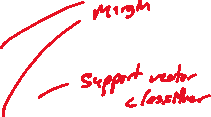 Margin
Support vector
classifier